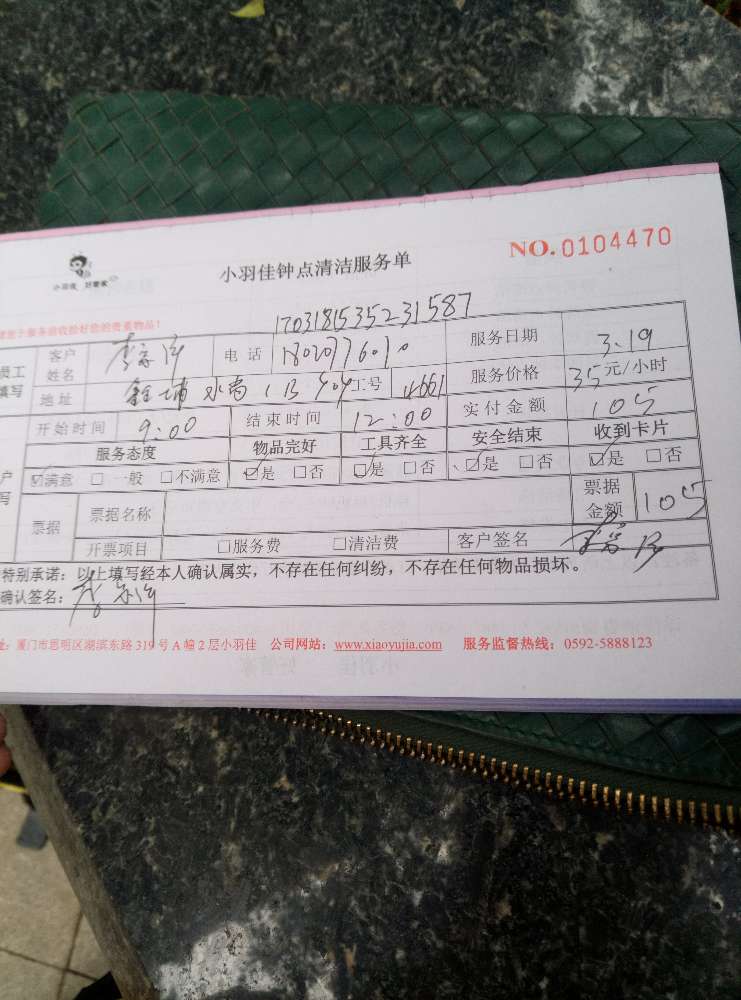 小羽佳 好管家
小羽佳钟点清洁服务单
NO. 0104470
于服务前收拾好您的贵重物品！
1703181535231587
员工填写 客户姓名 李 电话 服务日期 3.19
地址 工号 4661 服务价格 35元/小时
开始时间 9:00 结束时间 12:00 实付金额 105
服务态度 物品完好 工具齐全 安全结束 收到卡片
☑满意 □一般 □不满意 ☑是 □否 ☑是 □否 ☑是 □否 ☑是 □否
户写 票据 票据名称 票据金额 105
开票项目 □服务费 □清洁费 客户签名
特别承诺：以上填写经本人确认属实，不存在任何纠纷，不存在任何物品损坏。
确认签名：
址：厦门市思明区湖滨东路319号A幢2层小羽佳 公司网站：www.xiaoyujia.com 服务监督热线：0592-5888123